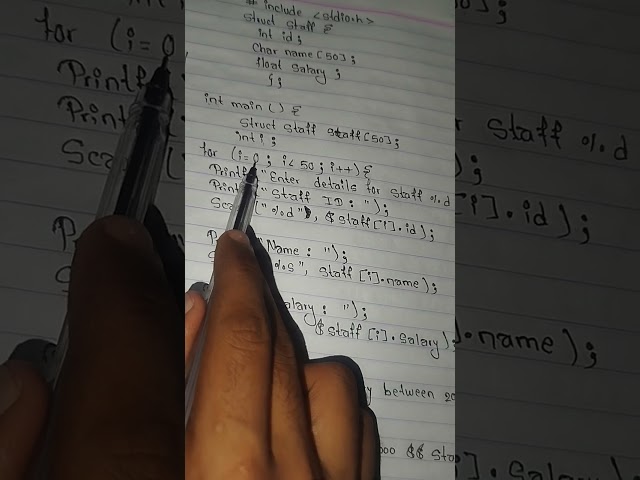 # include <stdio.h>
Struct Staff {
int id;
Char name [50];
float Salary;
};
int main () {
Struct Staff Staff [50];
int i;
for (i=0; i<50; i++) {
Printf "Enter details for Staff %d
Print "Staff ID: ");
Sca ("%d", &staff [i].id);
P Name: ");
S %s", Staff [i].name);
alary: ");
&Staff [i].Salary);
between 20
000 && Sta